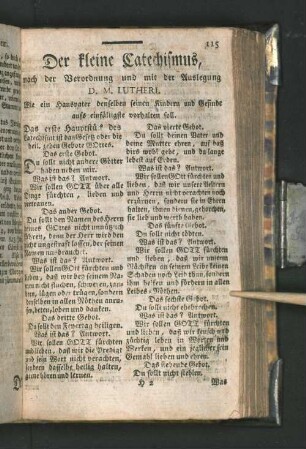 115
Der kleine Catechismus,
nach der Verordnung und mit der Auslegung
D. M. LUTHERI,
Wie ein Hausvater denselben seinen Kindern und Gesinde
aufs einfältigste vorhalten soll.
Das erste Hauptstück des
Catechismi ist das Gesetz oder die
heil. zehen Gebote GOttes.
Das erste Gebot.
Du sollt nicht andere Götter
haben neben mir.
Was ist das? Antwort.
Wir sollen GOTT über alle
Dinge fürchten, lieben und
Das ander Gebot.
Du sollt den Namen des Herrn
GOttes nicht unnützlich
führen, denn der Herr wird den
nicht ungestraft lassen, der seinen
Was ist das? Antwort.
Wir sollen GOtt fürchten und
lieben, daß wir bey seinem Namen
nicht fluchen, schweren, zaubern,
lügen oder trügen, sondern
denselben in allen Nöthen anrufen,
beten, loben und danken.
Das dritte Gebot.
Du sollt den Feyertag heiligen.
Was ist das? Antwort.
Wir sollen GOTT fürchten
und lieben, daß wir die Predigt
und sein Wort nicht verachten,
sondern dasselbe heilig halten,
gerne hören und lernen.
Das vierte Gebot.
Du sollt deinen Vater und
deine Mutter ehren, auf daß
dirs wohl gehe, und du lange
lebest auf Erden.
Was ist das? Antwort.
Wir sollen GOtt fürchten und
lieben, daß wir unsere Eltern
und Herren nicht verachten noch
erzürnen, sondern sie in Ehren
halten, ihnen dienen, gehorchen,
sie lieb und werth haben.
Das fünfte Gebot.
Du sollt nicht tödten.
Was ist das? Antwort.
Wir sollen GOTT fürchten
und lieben, daß wir unserm
Nächsten an seinem Leibe keinen
Schaden noch Leid thun, sondern
ihm helfen und fördern in allen
Leibes-Nöthen.
Das sechste Gebot.
Du sollt nicht ehebrechen.
Was ist das? Antwort.
Wir sollen GOTT fürchten
und lieben, daß wir keusch und
züchtig leben in Worten und
Werken, und ein jeglicher sein
Gemahl lieben und ehren.
Das siebende Gebot.
Du sollt nicht stehlen.
H 2 Was